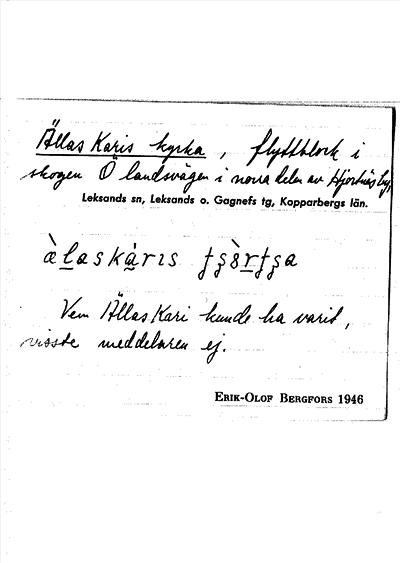 Ällas Karis kyrka, flyttblock i
skogen Ö landsvägen i norra delen av Hjortnäs by,
Leksands sn, Leksands o. Gagnefs tg, Kopparbergs län.
Vem Ällas Kari kunde ha varit,
visste meddelaren ej.
ERIK-OLOF BERGFORS 1946